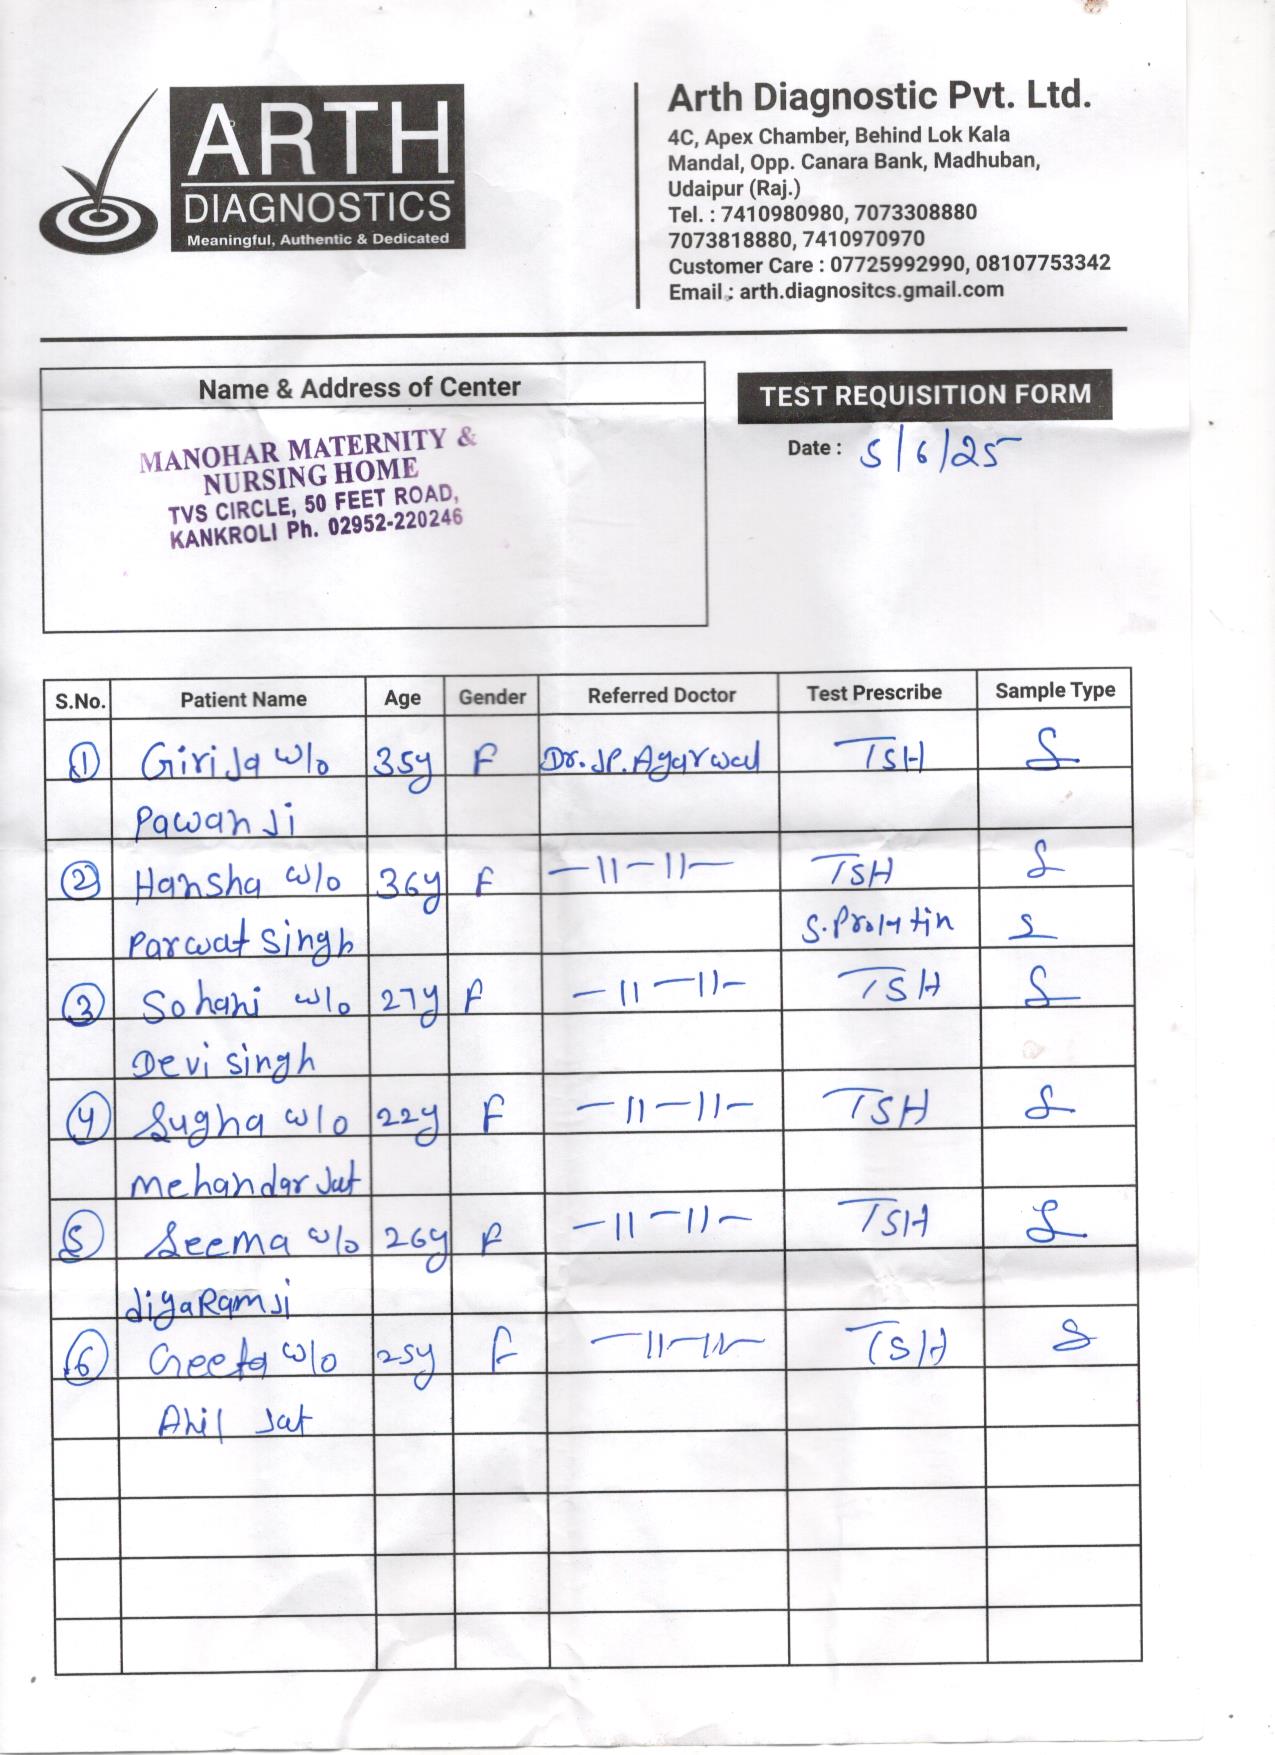 ARTH
DIAGNOSTICS
Meaningful, Authentic & Dedicated
Arth Diagnostic Pvt. Ltd.
4C, Apex Chamber, Behind Lok Kala
Mandal, Opp. Canara Bank, Madhuban,
Udaipur (Raj.)
Tel. : 7410980980, 7073308880
7073818880, 7410970970
Customer Care : 07725992990, 08107753342
Email : arth.diagnositcs.gmail.com
Name & Address of Center
MANOHAR MATERNITY &
NURSING HOME
TVS CIRCLE, 50 FEET ROAD,
KANKROLI Ph. 02952-220246
TEST REQUISITION FORM
Date : 5/6/25
S.No. Patient Name Age Gender Referred Doctor Test Prescribe Sample Type
1 Girija w/o 35y F Dr. JP. Agarwal TSH S
Pawan Ji
2 Hansha w/o 36y F —11—11— TSH S
Parwat Singh S. Prolatin S
3 Sohani w/o 27y F —11—11— TSH S
Devi Singh
4 Sugha w/o 22y F —11—11— TSH S
Mehandar Jat
5 Seema w/o 26y F —11—11— TSH S
diyaRam Ji
6 Geeta w/o 25y F —11—11— TSH S
Anil Jat